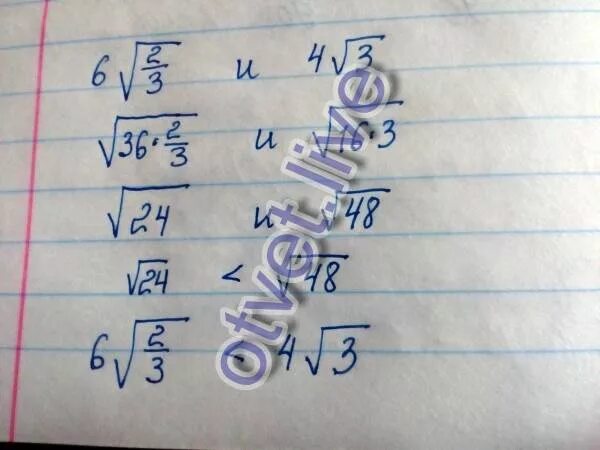 6√(2/3) и 4√3
√(36·2/3) и √(16·3)
√24 и √48
√24 < √48
6√(2/3) < 4√3
otvet.live